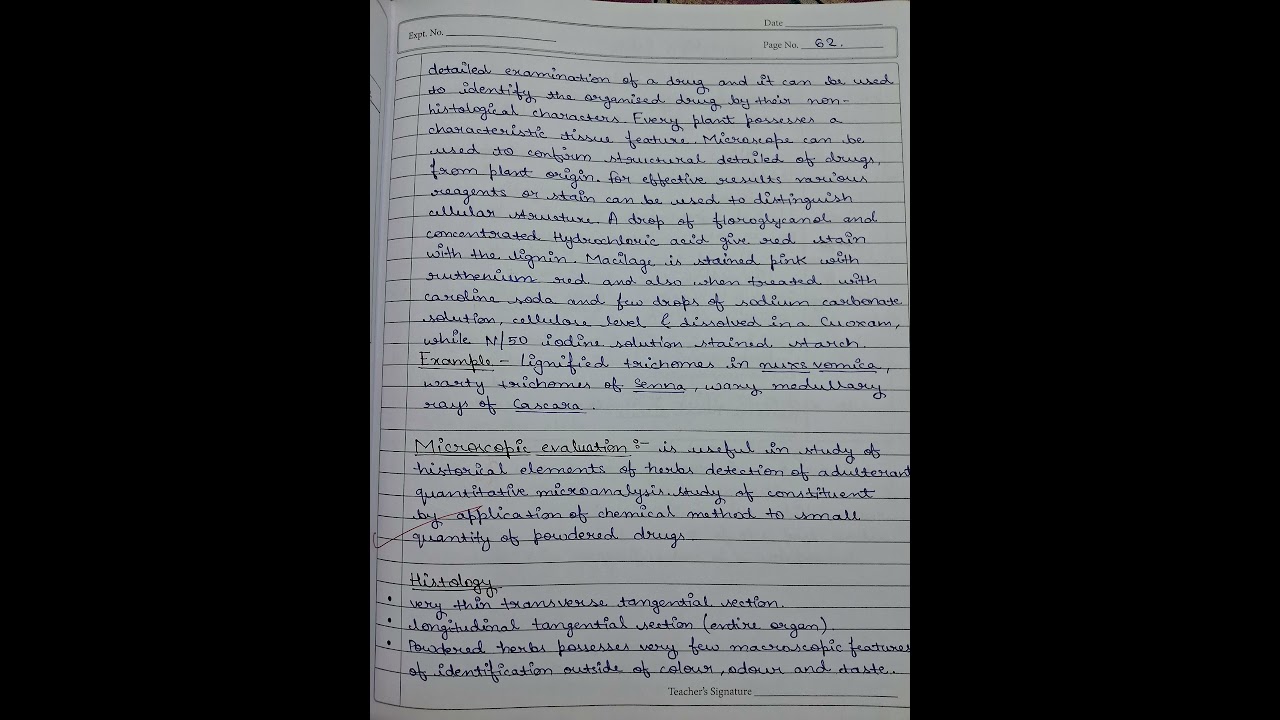 Date
Expt. No.
Page No. 62.
detailed examination of a drug and it can be used
to identify the organised drug by their non-
histological characters. Every plant possesses a
characteristic tissue feature. Microscope can be
used to confirm structural detailed of drugs,
from plant origin. For effective results various
reagents or stain can be used to distinguish
cellular structure. A drop of floroglycanol and
concentrated Hydrochloric acid give red stain
with the lignin. Macilage is stained pink with
ruthenium red and also when treated with
caroline soda and few drops of sodium carbonate
solution, cellulose level & dissolved in a Cuoxam,
while N/50 iodine solution stained starch.
Example - Lignified trichomes in nuxs vomica,
warty trichomes of Senna, wany medullary
rays of Cascara.
Microscopic evaluation :- is useful in study of
historial elements of herbs detection of adulterant
quantitative microanalysis. study of constituent
by application of chemical method to small
quantity of powdered drugs.
Histology
• very thin transverse tangential section.
• longitudinal tangential section (entire organ).
• Powdered herbs possesses very few macroscopic features
of identification outside of colour, odour and taste.
Teacher's Signature